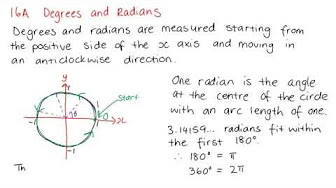 16A Degrees and Radians
Degrees and radians are measured starting from
the positive side of the x axis and moving in
an anticlockwise direction.
y
1
start
-1
θ
0
1
x
-1
One radian is the angle
at the centre of the circle
with an arc length of one.
3.14159... radians fit within
the first 180°.
∴ 180° = π
360° = 2π
Th